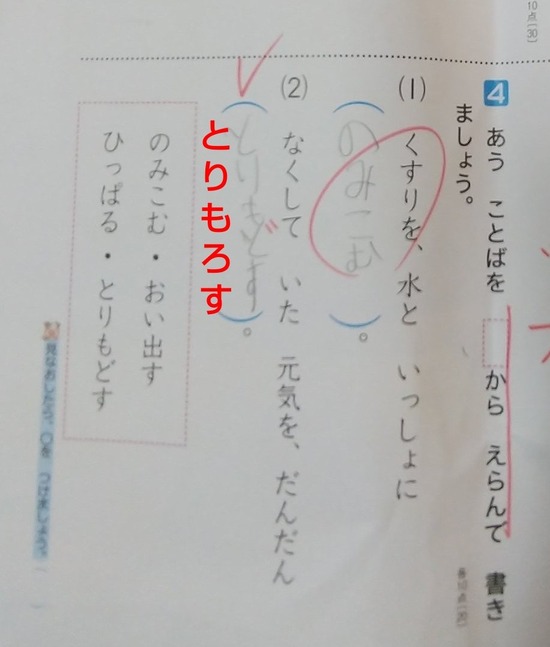 10点(30)
4 あう ことばを から えらんで 書き
ましょう。
各10点(20)
(1) くすりを、水と いっしょに
(のみこむ)。
(2) なくして いた 元気を、だんだん
(とりもどす)。
とりもろす
のみこむ・おい出す
ひっぱる・とりもどす
見なおしたら、○を つけましょう。( )